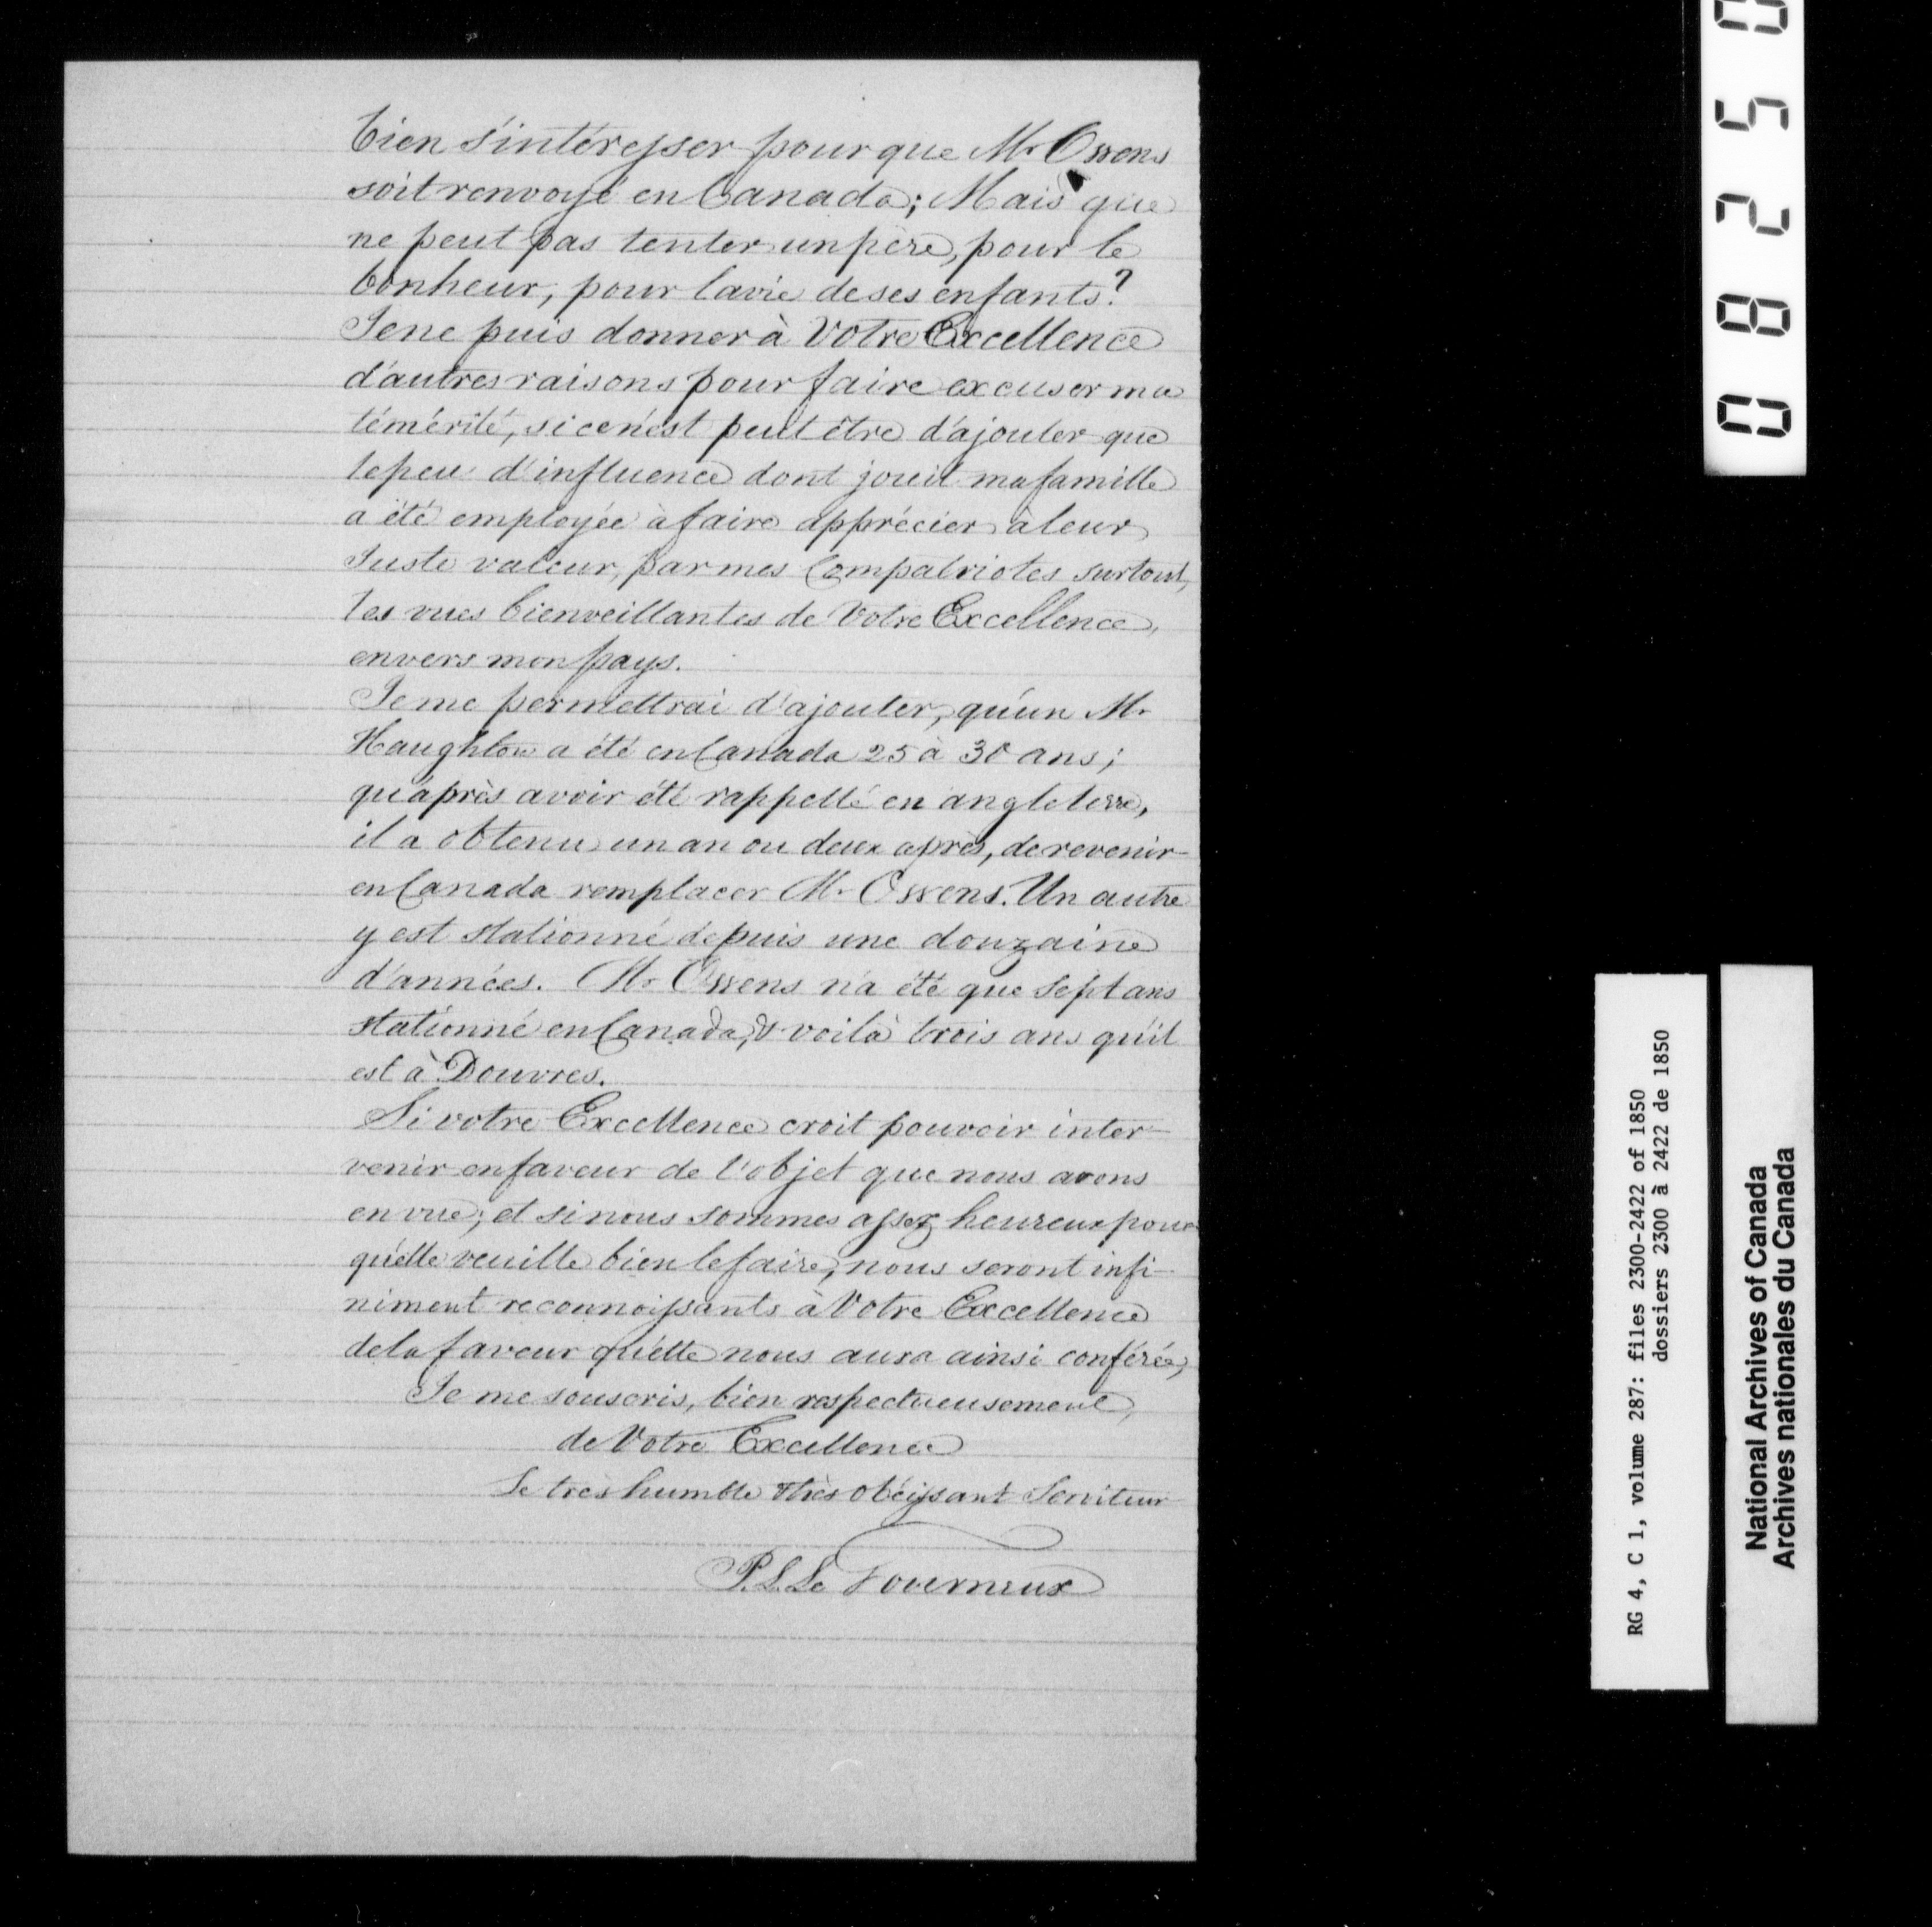 bien s'intéresser pour que Mr Owens
soit renvoyé en Canada; Mais que
ne peut pas tenter un père, pour le
bonheur, pour la vie de ses enfants?
Je ne puis donner à Votre Excellence
d'autres raisons pour faire excuser ma
témérité, si ce n'est peut être d'ajouter que
le peu d'influence dont jouit ma famille
a été employée à faire apprécier à leur
Juste valeur, par mes Compatriotes surtout,
les vues bienveillantes de Votre Excellence,
envers mon pays.
Je me permettrai d'ajouter, qu'un Mr
Haughton a été en Canada 25 à 30 ans;
qu'après avoir été rappellé en angleterre,
il a obtenu un an ou deux après, de revenir
en Canada remplacer Mr Owens. Un autre
y est stationné depuis une douzaine
d'années. Mr Owens n'a été que Sept ans
stationné en Canada, & voilà trois ans qu'il
est à Douvres.
Si votre Excellence croit pouvoir inter-
venir en faveur de l'objet que nous avons
en vue; et si nous sommes assez heureux pour
qu'elle veuille bien le faire, nous seront infi-
niment reconnoissants à Votre Excellence
de la faveur qu'elle nous aura ainsi conférée,
Je me souscris, bien respectueusement,
de Votre Excellence
Le très humble & très obéissant Serviteur
P. L. Le Tourneux
08250
RG 4, C 1, volume 287: files 2300-2422 of 1850
dossiers 2300 à 2422 de 1850
National Archives of Canada
Archives nationales du Canada